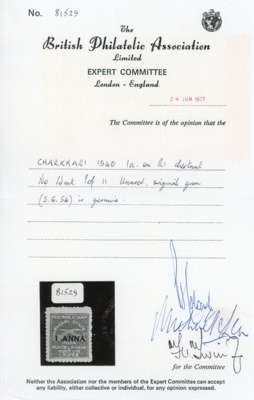 No. 81529
The
British Philatelic Association
Limited
EXPERT COMMITTEE
London - England
24 JUN 1977
The Committee is of the opinion that the
CHARKHARI 1940 1a. on R1 chestnut
No Wmk Perf 11 Unused, original gum
(S.G. 56) is genuine.
81529
1 ANNA
for the Committee
Neither the Association nor the members of the Expert Committee can accept
any liability, either collective or individual, for any opinion expressed.